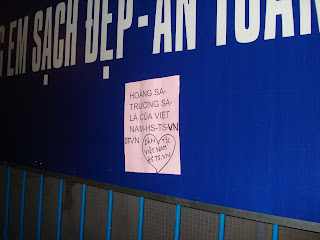 EM SẠCH ĐẸP - AN TOÀN
HOÀNG SA-
TRƯỜNG SA-
LÀ CỦA VIỆT
NAM-HS-TS-VN
VN
DÂN TỘC
VIỆT NAM
HS.TS.VN